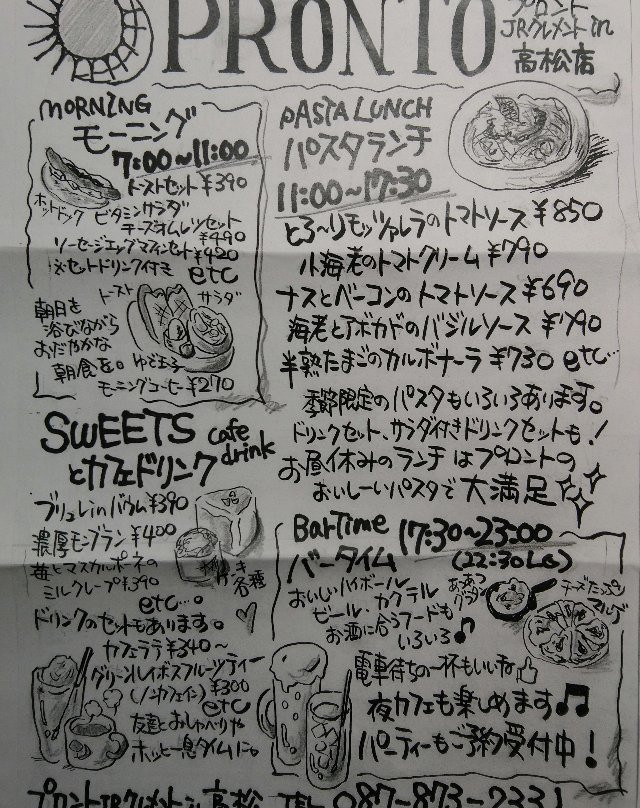 PRONTO
プロント
JRクレメントin
高松店
MORNING
モーニング
7:00~11:00
トーストセット ¥390
ホットドック ビタミンサラダ
チーズオムレツセット
¥490
ソーセージエッグマフィンセット ¥420
※セットドリンク付き etc
トースト サラダ
朝日を
浴びながら
おだやかな
朝食を。ゆで玉子
モーニングコーヒー¥270
PASTA LUNCH
パスタランチ
11:00~17:30
とろ~りモッツァレラのトマトソース ¥850
小海老のトマトクリーム ¥790
ナスとベーコンのトマトソース ¥690
海老とアボカドのバジルソース ¥790
半熟たまごのカルボナーラ ¥730 etc…
季節限定のパスタもいろいろあります。
ドリンクセット、サラダ付きドリンクセットも!
お昼休みのランチはプロントの
おいしーいパスタで大満足
SWEETS cafe
drink
とカフェドリンク
ブリュレinバウム¥390
濃厚モンブラン ¥400
苺とマスカルポーネの
ミルクレープ¥390
etc…。
各種
ドリンクのセットもあります。
カフェラテ ¥340~
グリーンルイボスフルーツティー
(ノンカフェイン) ¥300
etc
友達とおしゃべりや
ホッと一息タイムに。
BarTime 17:30~23:00
バータイム (22:30Lo)
おいしいハイボール
ビール、カクテル
お酒に合うフードも
いろいろ♪
チーズたっぷり
マルゲ
電車待ちの一杯もいいね
夜カフェも楽しめます♫
パーティーもご予約受付中!
プロントJRクレメントin高松 TEL 087-873-2331